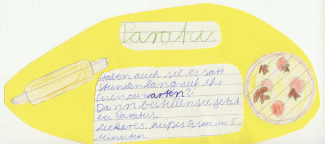 Paratus
Haben auch sie es satt
stundenlang auf ihr
Essen zu warten?
Dann bestellen sie jetzt
bei Paratus.
Leckeres, heißes Essen in 5
Minuten